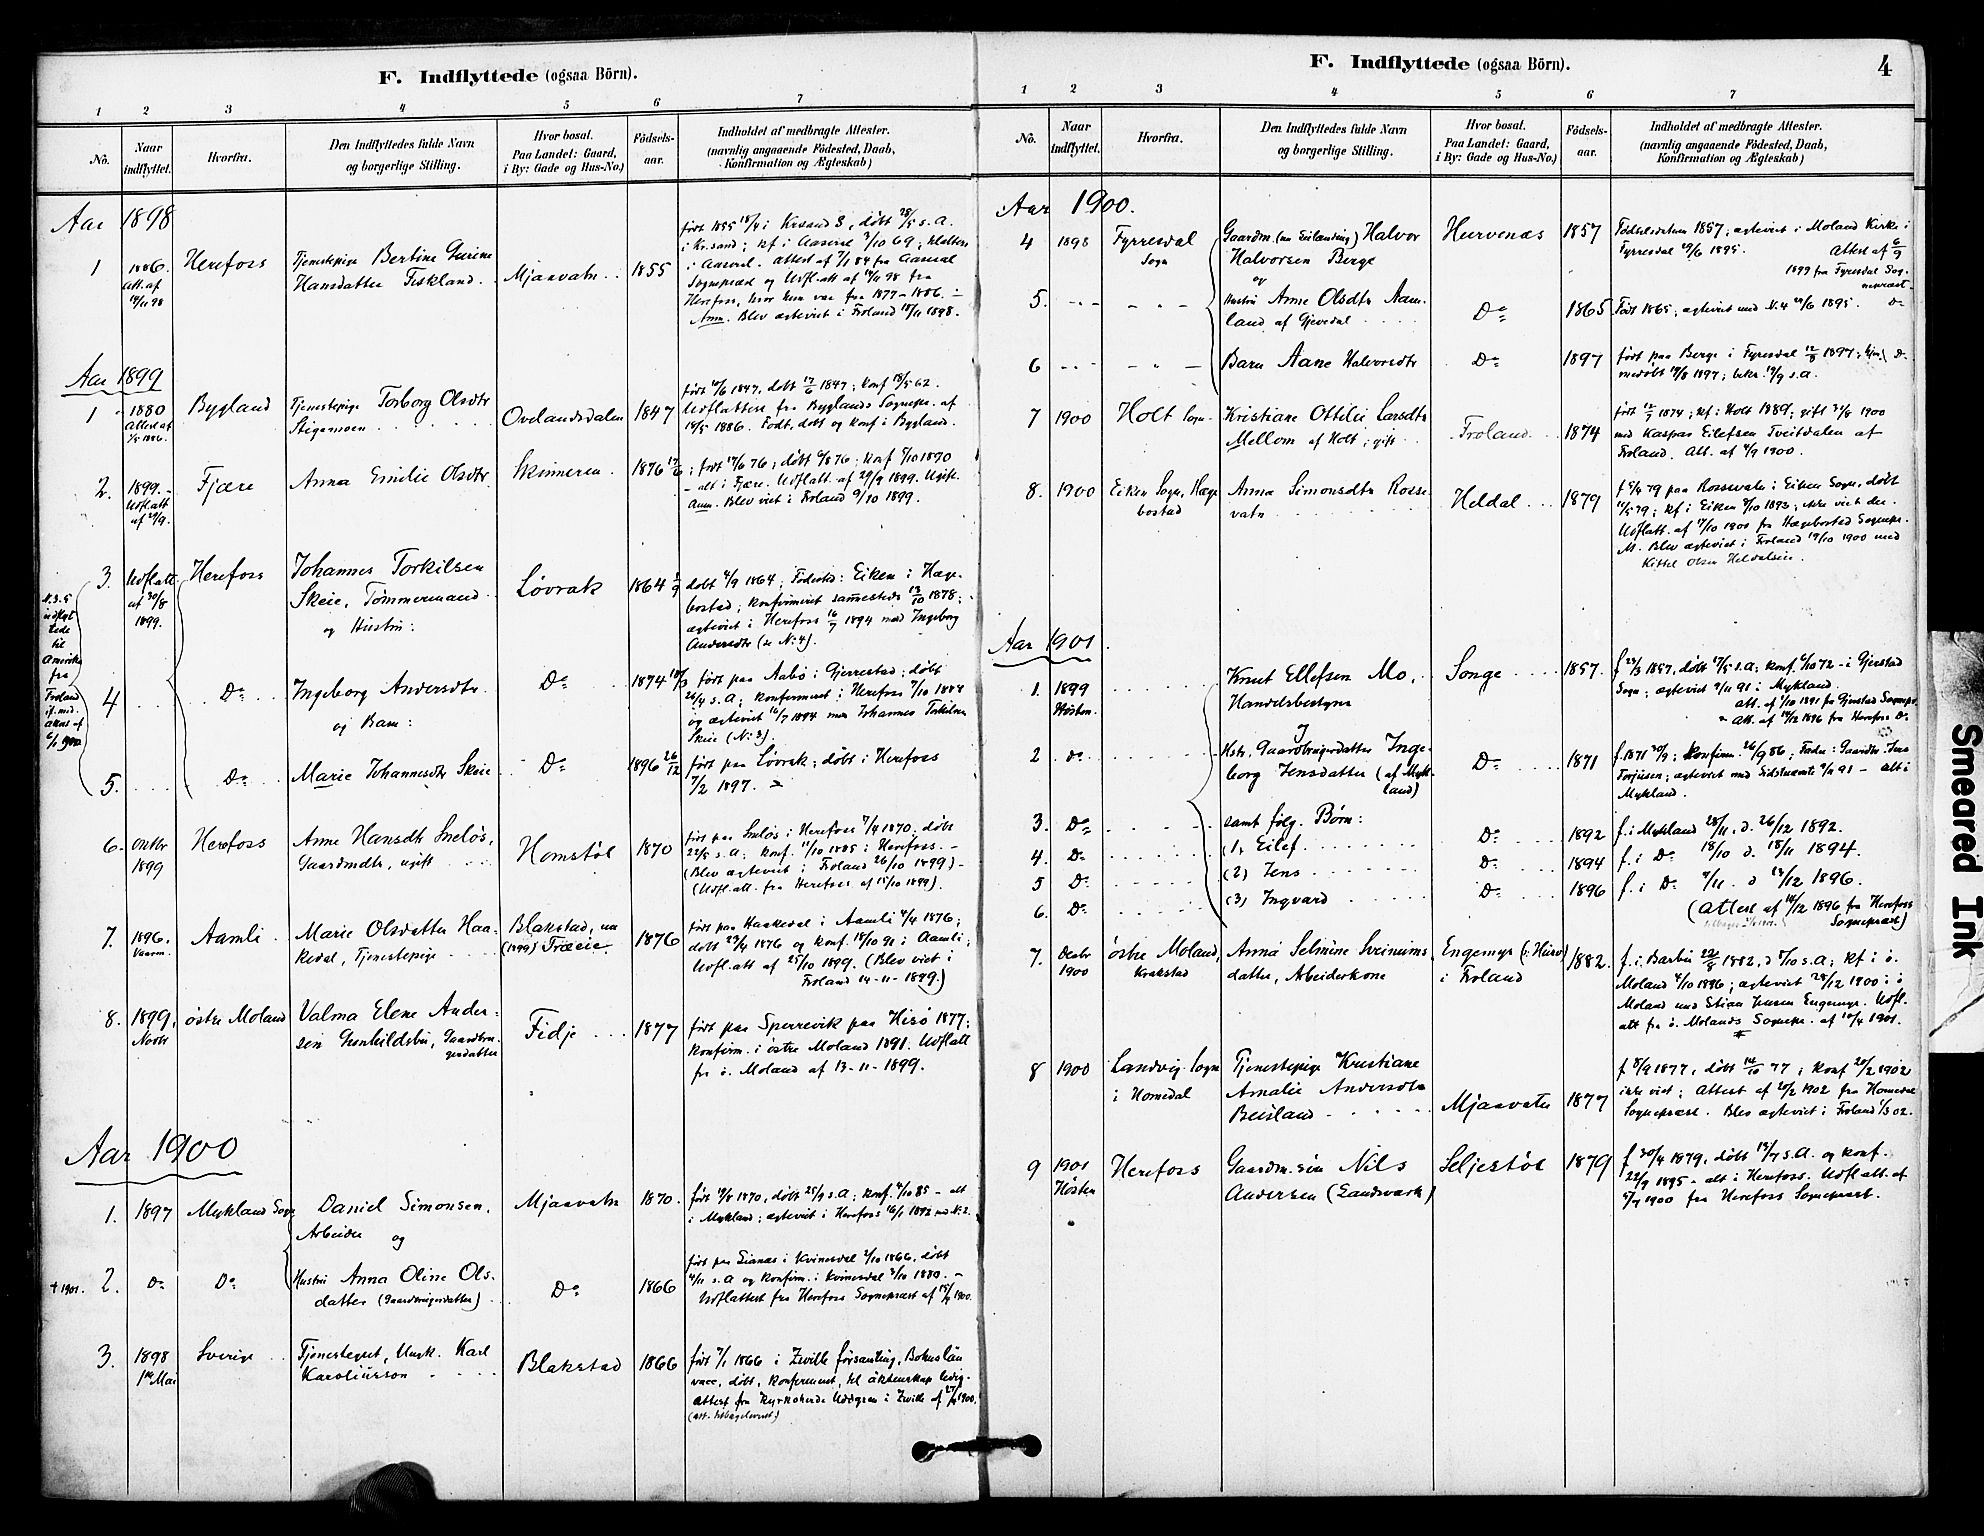 F. Indflyttede (ogsaa Börn).
1 2 3 4 5 6 7
No.
Naar indflyttet.
Hvorfra.
Den Indflyttedes fulde Navn
og borgerlige Stilling.
Hvor bosat.
Paa Landet: Gaard,
i By: Gade og Hus-No.)
Födsels-
aar.
Indholdet af medbragte Attester.
(navnlig angaaende Födested, Daab,
Konfirmation og Ægteskab)
Aar 1898
1
1886.
Att. af
14/11 98
Herefoss
Tjenestepige Bertine Gurine
Hansdatter Fiskland.
Mjaavatn
1855
født 1855 18/4 i Krsand S, døbt 28/5 s.A.
i Kr.sand; kf i Aaseral 3/10 69;
i Aaseral. Attest af 7/1 84 fra Aaseral
Sognepræst og Udfl.att af 14/11 98 fra
Herefoss, hvor hun var fra 1877-1886.
Anm. Blev ægteviet i Froland 18/11 1898.
Aar 1899
1
1880
Attest af
1/5 1886.
Bygland
Tjenestepige Torborg Olsdtr
Stigemoen
Ovelandsdalen
1847
født 10/6 1847, døbt 17/6 1847; Konf 18/5 62.
Udflattest fra Byglands Sognepr. af
14/5 1886. Født, døbt og konf i Bygland.
2.
1899.
Udfl.att
af 29/9.
Fjære
Anna Emilie Olsdtr
Skinneren
1876 17/6
; født 17/6 76; døbt 6/8 76; Konf 7/10 1890
- alt i Fjære. Udfl.att. af 29/9 1899. Ugift.
Anm. Blev viet i Froland 9/10 1899.
N. 3-5
udflyt
tede
til
Amerika
fra
Froland
3.
Udflatt
af 30/8
1899.
Herefoss
Johannes Torkilsen
Skeie, Tømmermand
og Hustru:
Løvrak
1864 2/9
døbt 4/9 1864; Fødested: Eiken i Hæge-
bostad; konfirmeret sammesteds 13/10 1878;
ægteviet i Herefoss 16/7 1894 med Ingeborg
Andersdtr (se N: 4).
4
Do
Ingeborg Andersdtr
og Barn:
Do
1874 18/3
født paa Aabø i Gjerrestad; døbt
26/4 s.A; konfirmeret i Herefoss 7/10 1888
og ægteviet 16/7 1894 med Johannes Torkilsen
Skeie (N: 3).
5.
Do
Marie Johannesdtr Skeie
Do
1896 26/12
født paa Løvrak; døbt i Herefoss
7/2 1897.
6.
Oktbr
1899
Herefoss
Anne Hansdtr Sneløs,
Gaardmdtr, ugift
Homstøl
1870
født paa Sneløs i Herefoss 7/4 1870, døbt
22/5 s.A; konf. 11/10 1885 i Herefoss. -
(Blev ægteviet i Froland 26/10 1899) -
(Udfl.att. fra Herefoss af 15/10 1899).
7.
1896.
Vaaren.
Aamli
Marie Olsdatter Haa-
kedal, Tjenestepige
Blakstad, nu
(1899) Træeie
1876
født paa Haakedal i Aamli 4/4 1876;
døbt 23/4 1876 og konf. 18/10 91 i Aamli;
Udfl.att af 25/10 1899. (Blev viet i
Froland 14-11-1899)
8.
1899,
Novbr
østre Moland
Valma Elene Ander-
sen Gunhildsbu, Gaardbru-
gerdatter
Fidje
1877
født paa Sperrevik paa Hisø 1877;
konfirm. i østre Moland 1891. Udflatt
fr. ø. Moland af 13-11-1899.
Aar 1900
1.
1897
Mykland Sogn
Daniel Simonsen,
Arbeider og
Mjaavatn
1870.
født 19/8 1870, døbt 25/9 s.A; konf. 4/10 85 - alt
i Mykland; ægteviet i Herefoss 16/1 1892 med N: 2.
† 1901.
2.
Do
Do
Hustru Anna Oline Ols-
datter (Gaardbrugerdatter)
Do
1866
født paa Lianæs i Kvinesdal 2/10 1866, døbt
4/11 s.A og konfirm. i Kvinesdal 3/10 1880. -
Udflattest fra Herefoss Sognepræst af 15/4 1900.
3.
1898
1ste Mai
Sverige
Tjenestegut, Ungk. Karl
Karoliusson
Blakstad
1866
født 7/1 1866 i Zville församling, Bohuslän
vacc, döbt, konfirmeret, til äktenskap ledig.
Attest fra Kyrkoherde Uddgren i Zville af 27/4 1900.
(att. tilbageleveret)
F. Indflyttede (ogsaa Börn).
4
1 2 3 4 5 6 7
No.
Naar
indflyttet.
Hvorfra.
Den Indflyttedes fulde Navn
og borgerlige Stilling.
Hvor bosat.
Paa Landet: Gaard,
i By: Gade og Hus-No.)
Födsels-
aar.
Indholdet af medbragte Attester.
(navnlig angaaende Födested, Daab,
Konfirmation og Ægteskab)
Aar 1900.
4
1898
Fyrresdal
Sogn
Gaardm. (nu Eilænding) Halvor
Halvorsen Berge
og
Hurvenæs
1857
Fødselsdatum 1857; ægteviet i Moland Kirke i
Fyrresdal 29/6 1895. Attest af 6/9
1899 fra Fyresdal Sog-
nepræst.
5.
Hustru Anne Olsdtr Aam-
land af Gjevedal
Do
1865
Født 1865; ægteviet med N. 4 29/6 1895. Do
6
Barn Aane Halvorsdtr
Do
1897
født paa Berge i Fyresdal 12/8 1897; hjm. Do
medøbt 17/8 1897; bekr. 19/9 s.A.
7
1900
Holt Sogn
Kristiane Ottilie Larsdtr
Mellom af Holt; gift
Froland
1874
født 12/7 1874; kf i Holt 1889; gift 31/8 1900
med Kaspar Eilefsen Tveitdalen af
Froland. Att. af 4/9 1900.
8.
1900
Eiken Sogn, Hæge
bostad
Anna Simonsdtr Rosse-
vatn
Heldal
1879
f 5/4 79 paa Rossevatn i Eiken Sogn, døbt
11/5 79; kf i Eiken 8/10 1893; ikke viet der.
Udflatt. af 17/10 1900 fra Hægebostad Sognepr.
M. Blev ægteviet i Froland 19/10 1900 med
Kittel Olsen Heldalslien.
Aar 1901.
1.
1899
Høsten.
Knut Ellefsen Mo,
Handelsbestyrer
Songe
1857.
f 27/3 1857, døbt 17/5 s.A; konf. 6/10 72 - i Gjerstad
Sogn; ægteviet 9/11 91 i Mykland.
Att. af 7/10 1891 fra Gjerstad Sognepr.
Att. af 14/12 1896 fra Herefoss Do
2
Do
Hstr. Gaardbrugerdatter Inge-
borg Jensdatter (af Myk-
land)
Do
1871
f. 1871 20/9; konfirm. 26/9 86; Fader: Gaardbr. Jens
Torjusen; ægteviet med Sidstnævnte 9/11 91 - alt i
Mykland.
3.
Do
samt følg. Børn:
(1) Eilef.
Do
1892
f. i Mykland 28/11, d. 26/12 1892.
4.
Do
(2) Jens
Do
1894
f. i Do 18/10 d. 18/11 1894.
5
Do
(3) Ingvard
Do
1896
f. i Do 9/11. d 13/12 1896.
6.
Do
(Attest af 14/12 1896 fra Herefoss
Sognepræst)
7.
Decbr
1900
østre Moland,
Krakstad
Anna Selmine Sveinums-
datter, Arbeiderkone
Engemyr (i Hurv)
i Froland
1882.
f. i Barbu 22/8 1882, d 8/10 s.A; kf i ø.
Moland 4/10 1896; ægteviet 28/12 1900 i ø
Moland med Stian Jensen Engemyr. Udfl.
att fra ø. Molands Sognepr. af 10/4 1901.
8
1900
Landvig Sogn
i Homedal
Tjenestepige Kristiane
Amalie Andersdtr
Beisland
Mjaavatn
1877
f 8/9 1877, døbt 14/10 77; konf 20/2 1902
ikke viet; Attest af 20/2 1902 fra Homedal
Sognepræst. Blev ægteviet i Froland 1/3 02.
9
1901
Høsten
Herefoss
Gaardm.søn Nils
Andersen (Landverk)
Seljestøl
1879
f 30/4 1879, døbt 13/7 s.A. og konf.
22/9 1895 - alt i Herefoss. Udfl att. af
5/7 1900 fra Herefoss Sognepræst.
Smeared Ink